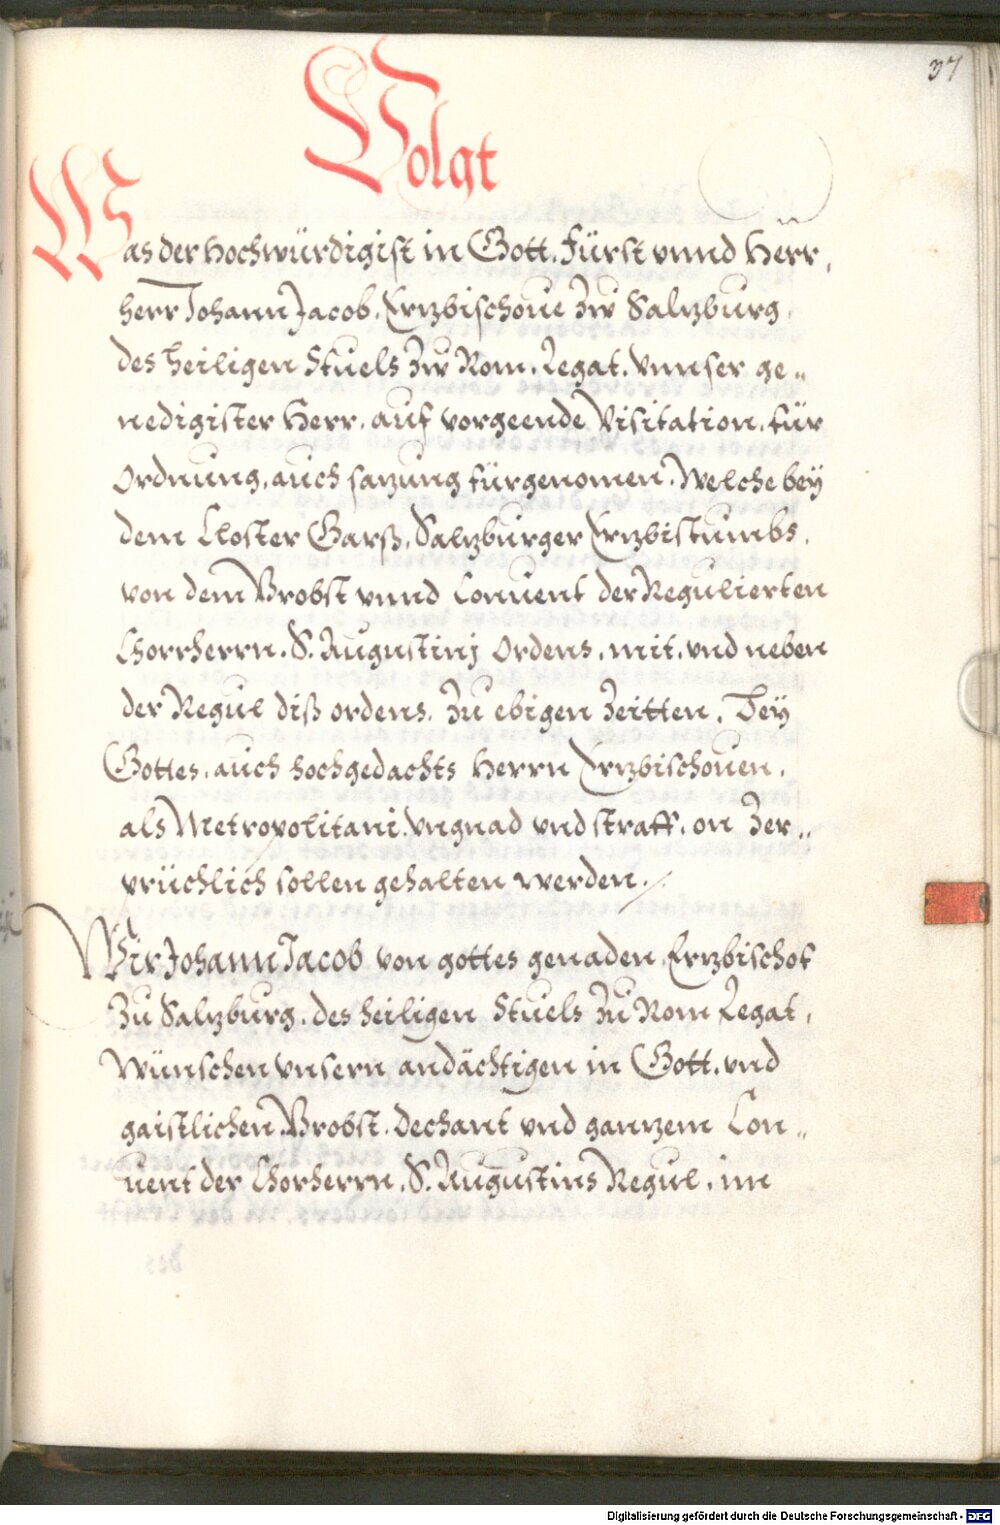 37
Volgt
Was der Hochwürdigist in Gott, Fürst vnnd Herr,
herr Johann Jacob, Ertzbischoue Zw Saltzburg,
des heiligen Stuels Zw Rom, Legat, Vnnser ge„
nedigister Herr, auf vorgeende Visitation, für
Ordnung, auch satzung fürgenomen, Welche bey
dem Closter Garß, Saltzburger Ertzbistumbs,
von dem Brobst vnnd Conuent der Regulierten
Chorrherrn, S. Augustinj Ordens, mit, vnd neben
der Regul diß ordens, Zu ebigen Zeitten, Bey
Gottes, auch hochgedachts Herrn Ertzbischouen,
als Metropolitani, vngnad vnd straff, on Zer„
prüchlich sollen gehalten werden.
Wir Johann Jacob von gottes genaden, Ertzbischof
Zu Saltzburg, des heiligen Stuels Zu Rom Legat,
Wünschen vnsern andächtigen in Gott, vnd
gaistlichen, Brobst, Dechant vnd gantzem Con„
uent der Chorherrn, S. Augustins Regul, im
Digitalisierung gefördert durch die Deutsche Forschungsgemeinschaft - DFG